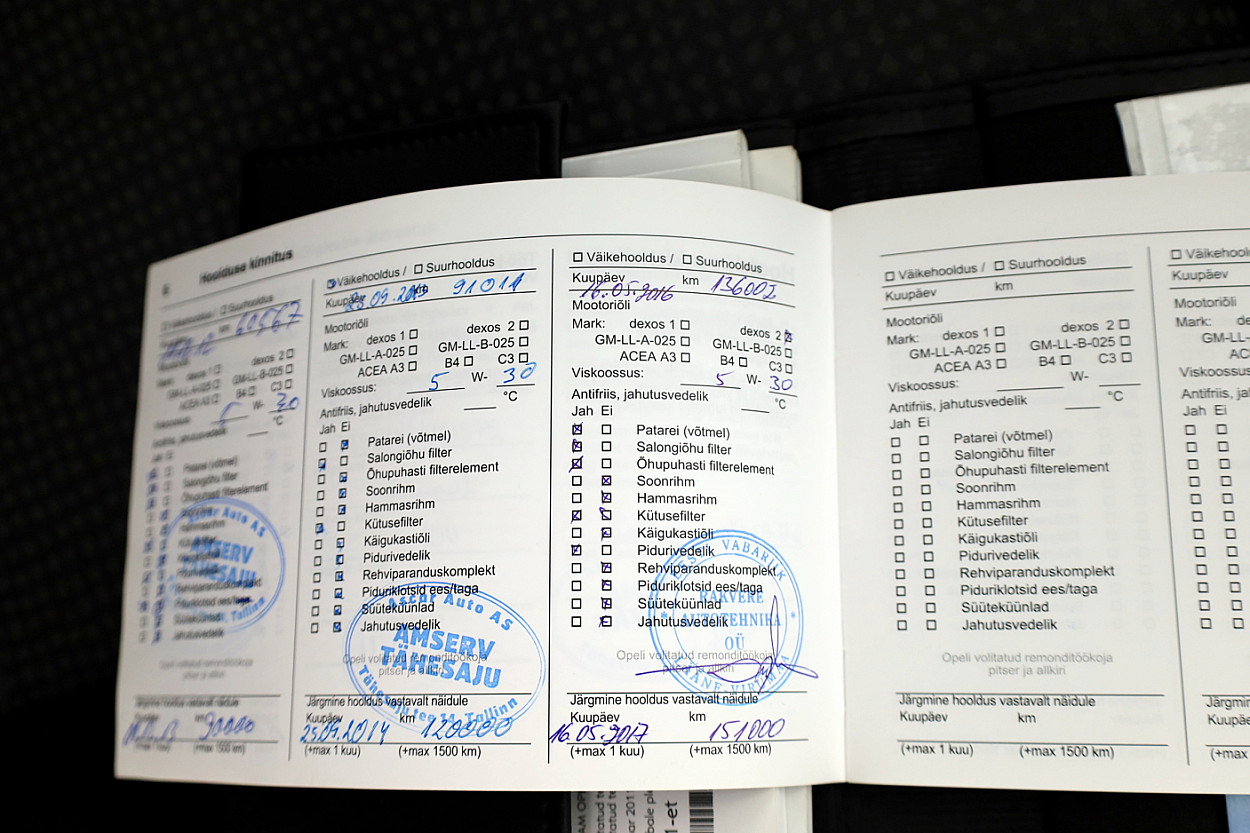 Hoolduse kinnitus
60567
km
dexos 2 ☐
GM-LL-B-025
B4 C3
ACEA A3
W- 30
°C
Patarei (võtmel)
Salongiõhu filter
Õhupuhasti filterelement
Ascar Auto AS
AMSERV
TÄHESAJU
Jahutusvedelik
Opeli volitatud remonditöökoja
pitser ja allkiri
Järgmine hooldus vastavalt näidule
90000
(+max 1 kuu) (+max 1500 km)
Väikehooldus / ☐ Suurhooldus
Kuupäev km 91011
Mootoriõli
Mark: dexos 1 ☐ dexos 2 ☐
GM-LL-A-025 ☐ GM-LL-B-025 ☐
ACEA A3 ☐ B4 ☐ C3 ☐
Viskoossus: 5 W- 30
Antifriis, jahutusvedelik ____ °C
Jah Ei
Patarei (võtmel)
Salongiõhu filter
Õhupuhasti filterelement
Soonrihm
Hammasrihm
Kütusefilter
Käigukastiõli
Pidurivedelik
Rehviparanduskomplekt
Piduriklotsid ees/taga
Süüteküünlad
Jahutusvedelik
Ascar Auto AS
AMSERV
TÄHESAJU
Tähesaju tee 14, Tallinn
Opeli volitatud remonditöökoja
pitser ja allkiri
Järgmine hooldus vastavalt näidule
Kuupäev km
25.09.2014 120000
(+max 1 kuu) (+max 1500 km)
☐ Väikehooldus / ☐ Suurhooldus
Kuupäev km 136002
16.05.2016
Mootoriõli
Mark: dexos 1 ☐ dexos 2
GM-LL-A-025 ☐ GM-LL-B-025 ☐
ACEA A3 ☐ B4 ☐ C3 ☐
Viskoossus: 5 W- 30
Antifriis, jahutusvedelik ____ °C
Jah Ei
Patarei (võtmel)
Salongiõhu filter
Õhupuhasti filterelement
Soonrihm
Hammasrihm
Kütusefilter
Käigukastiõli
Pidurivedelik
Rehviparanduskomplekt
Piduriklotsid ees/taga
Süüteküünlad
Jahutusvedelik
EESTI VABARIIK
RAKVERE
AUTOTEHNIKA
OÜ
LÄÄNE-VIRUMAA
Opeli volitatud remonditöökoja
pitser ja allkiri
Järgmine hooldus vastavalt näidule
Kuupäev km
16.05.2017 151000
(+max 1 kuu) (+max 1500 km)
☐ Väikehooldus / ☐ Suurhooldus
Kuupäev km
Mootoriõli
Mark: dexos 1 ☐ dexos 2 ☐
GM-LL-A-025 ☐ GM-LL-B-025 ☐
ACEA A3 ☐ B4 ☐ C3 ☐
Viskoossus: ____ W- ____
Antifriis, jahutusvedelik ____ °C
Jah Ei
☐ ☐ Patarei (võtmel)
☐ ☐ Salongiõhu filter
☐ ☐ Õhupuhasti filterelement
☐ ☐ Soonrihm
☐ ☐ Hammasrihm
☐ ☐ Kütusefilter
☐ ☐ Käigukastiõli
☐ ☐ Pidurivedelik
☐ ☐ Rehviparanduskomplekt
☐ ☐ Piduriklotsid ees/taga
☐ ☐ Süüteküünlad
☐ ☐ Jahutusvedelik
Opeli volitatud remonditöökoja
pitser ja allkiri
Järgmine hooldus vastavalt näidule
Kuupäev km
(+max 1 kuu) (+max 1500 km)
☐ Väikehooldus
Kuupäev
Mootoriõli
Mark:
GM-LL-A
Viskoossus
Antifriis, ja
Jah Ei
Järgmine
(+max
1-et